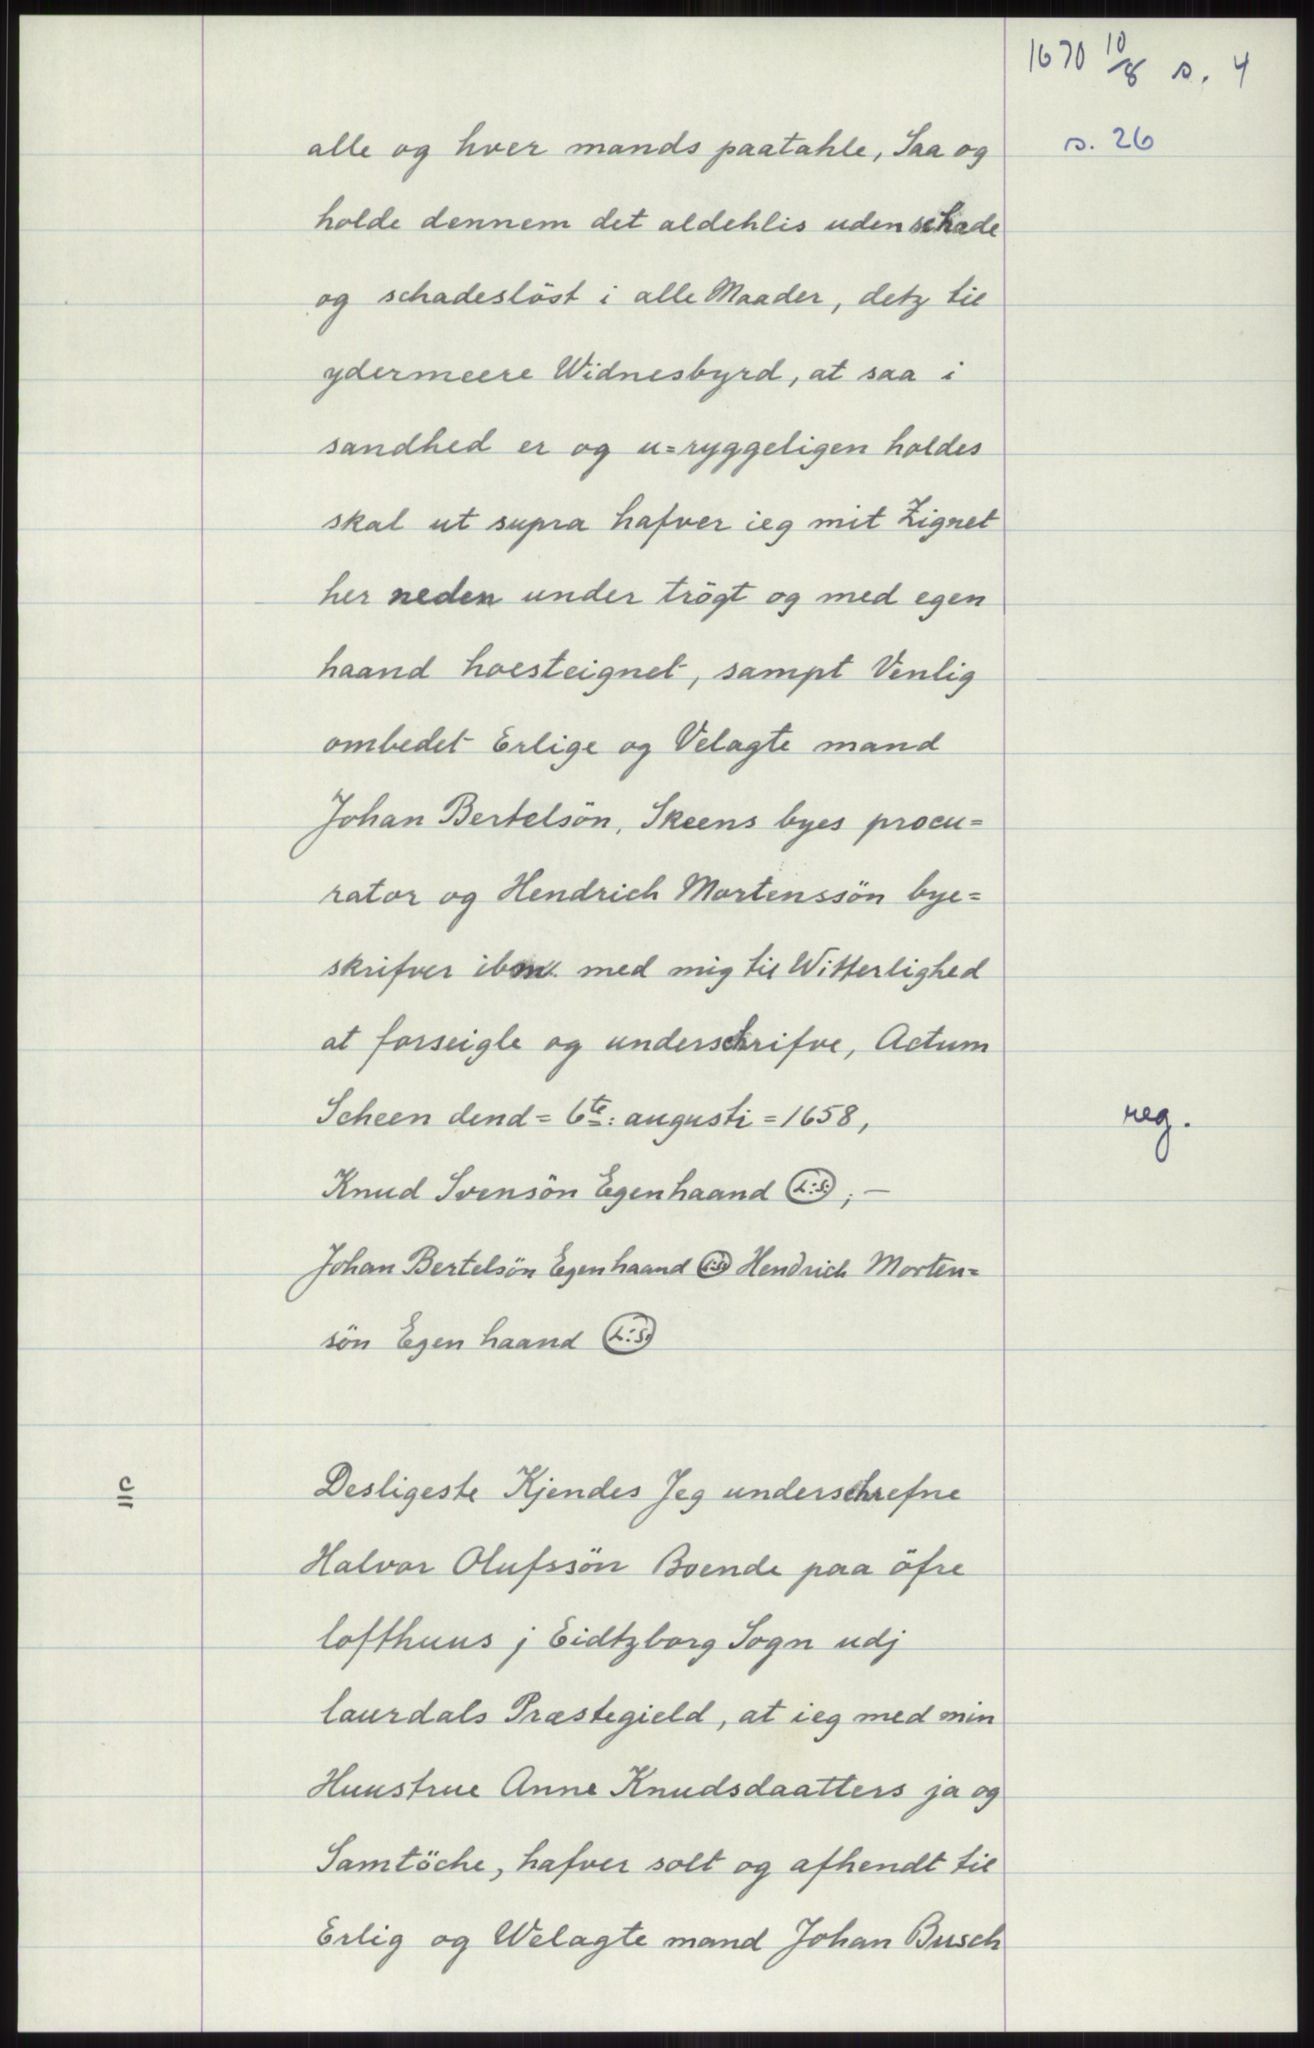 1670 10/8 s. 4
s. 26
alle og hver mands paatahle, Saa og
holde dennem det aldehlis uden schade
og schadeslöst i alle Maader, detz til
ydermeere Widnesbyrd, at saa i
sandhed er og u=ryggeligen holdes
skal ut supra hafver ieg mit Zignet
her neden under trögt og med egen
haand hoesteignet, sampt Venlig
ombedet Erlige og Velagte mand
Johan Bertelsön, Skeens byes procu=
rator og Hendrich Mortenssön bye=
skrifver ibm. med mig til Witterlighed
at forseigle og underschrifve, Actum
Scheen dend = 6te: augusti = 1658,
reg.
Knud Svensön Egenhaand L:S: ; —
Johan Bertelsön Egenhaand L:S: Hendrich Morten=
sön Egen haand L:S:
Desligeste Kjendes Jeg underschrefne
Halvor Olufssön Boende paa öfre
lofthuus j Eidtzborg Sogn udj
laurdals Præstegield, at ieg med min
Huustrue Anne Knudsdaatters ja og
Samtöche, hafver solt og afhendt til
Erlig og Welagte mand Johan Busch